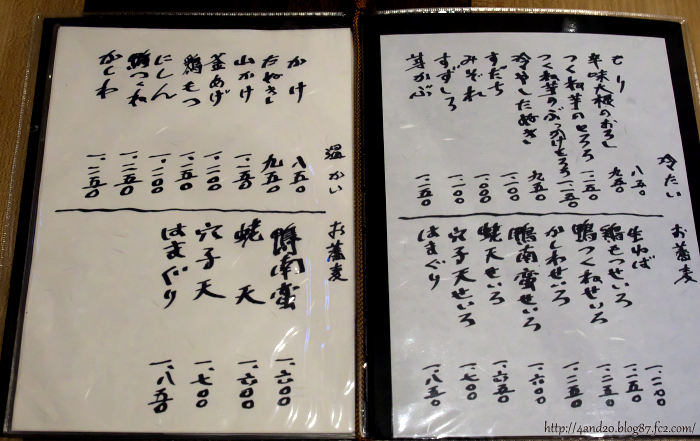 冷たい
お蕎麦
もり 八五〇
辛味大根のおろし 九五〇
つくね芋のとろろ 一、一五〇
つくね芋のぶっかけとろろ 一、二五〇
冷やしたぬき 九五〇
すだち 一、一〇〇
みぞれ 一、〇〇〇
すずしろ 一、一〇〇
芽かぶ 一、二五〇
生ゆば 一、二〇〇
鶏もつせいろ 一、一五〇
鴨つくねせいろ 一、二五〇
かしわせいろ 一、二五〇
鴨南蛮せいろ 一、六〇〇
蛯天せいろ 一、六五〇
穴子天せいろ 一、七〇〇
はまぐり 一、八五〇
温かい
お蕎麦
かけ 八五〇
たぬき 九五〇
山かけ 一、一五〇
釜あげ 一、〇〇〇
鶏もつ 一、一五〇
にしん 一、二〇〇
鴨つくね 一、二五〇
かしわ 一、二五〇
鴨南蛮 一、六〇〇
蛯天 一、六〇〇
穴子天 一、七〇〇
はまぐり 一、八五〇
http://4and20.blog87.fc2.com/